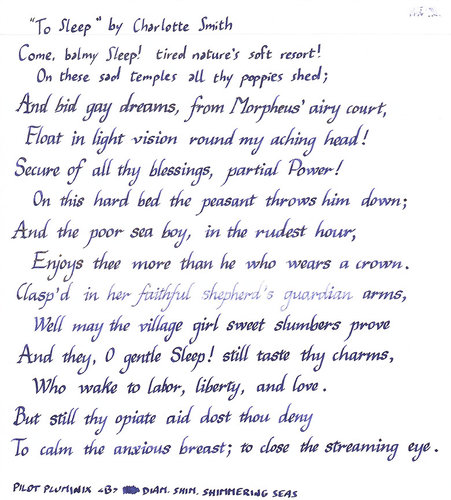 "To Sleep" by Charlotte Smith
Come, balmy Sleep! tired nature's soft resort!
On these sad temples all thy poppies shed;
And bid gay dreams, from Morpheus' airy court,
Float in light vision round my aching head!
Secure of all thy blessings, partial Power!
On this hard bed the peasant throws him down;
And the poor sea boy, in the rudest hour,
Enjoys thee more than he who wears a crown.
Clasp'd in her faithful shepherd's guardian arms,
Well may the village girl sweet slumbers prove
And they, O gentle Sleep! still taste thy charms,
Who wake to labor, liberty, and love.
But still thy opiate aid dost thou deny
To calm the anxious breast; to close the streaming eye.
PILOT PLUMINIX <B> DIAM. SHIM. SHIMMERING SEAS